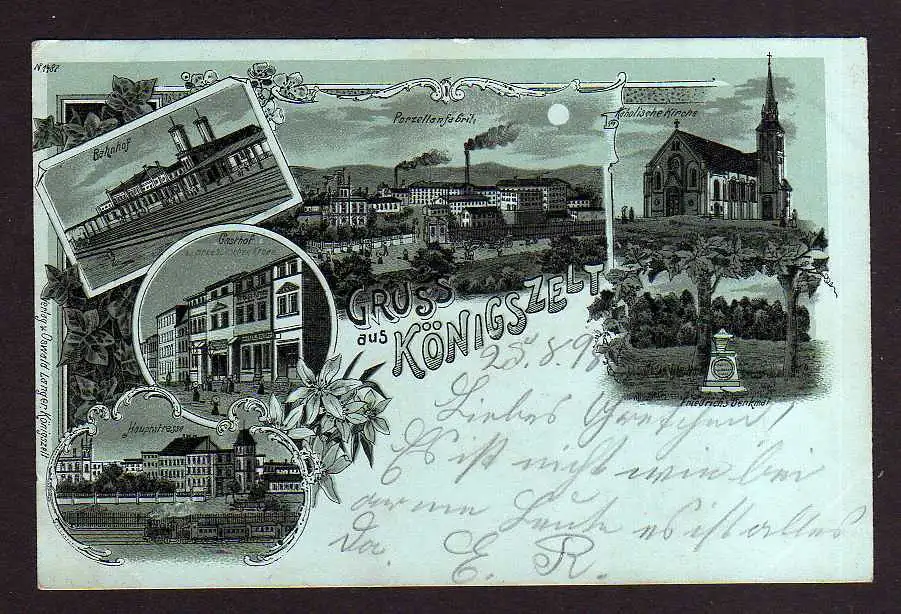 No 1487
Bahnhof
Porzellanfabrik
Katholische Kirche
Gasthof
GRUSS
aus KÖNIGSZELT
Friedrichs Denkmal
Hauptstrasse
Verlag v. Oswald Langer, Königszelt
25.8.98
Liebes Gretchen!
Es ist nicht wie bei
arme Leute es ist alles
Da. E. R.